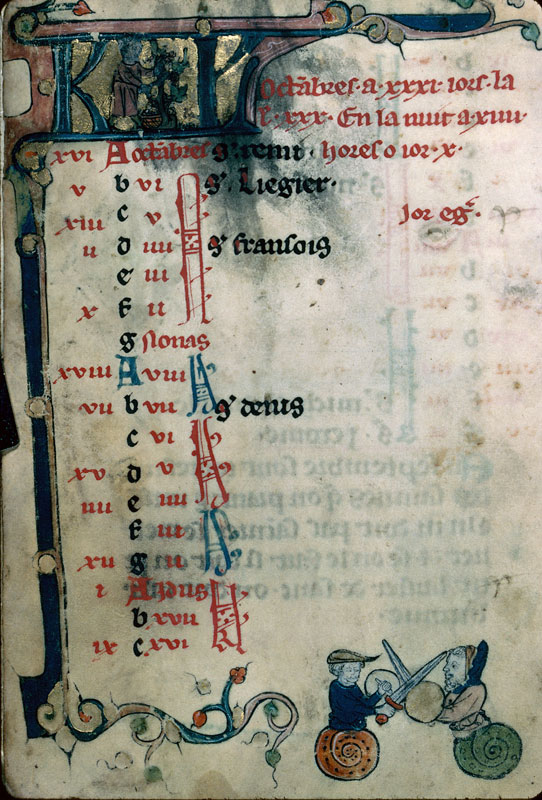 KL
Octabres · a · xxxi · iors · la
l · xxx · En la nuit a · xiiii ·
xvi A octabres s' remi · hores o ior · x ·
v b vi s' Liegier ·
xiii c v Ior eg' ·
ii d iiii s' fransois
e iii
x f ii
g nonas
xviii A viii
vii b vii s' denis
c vi
xv d v
iiii e iiii
f iii
xii g ii
i A idus
b xvii
ix c xvi